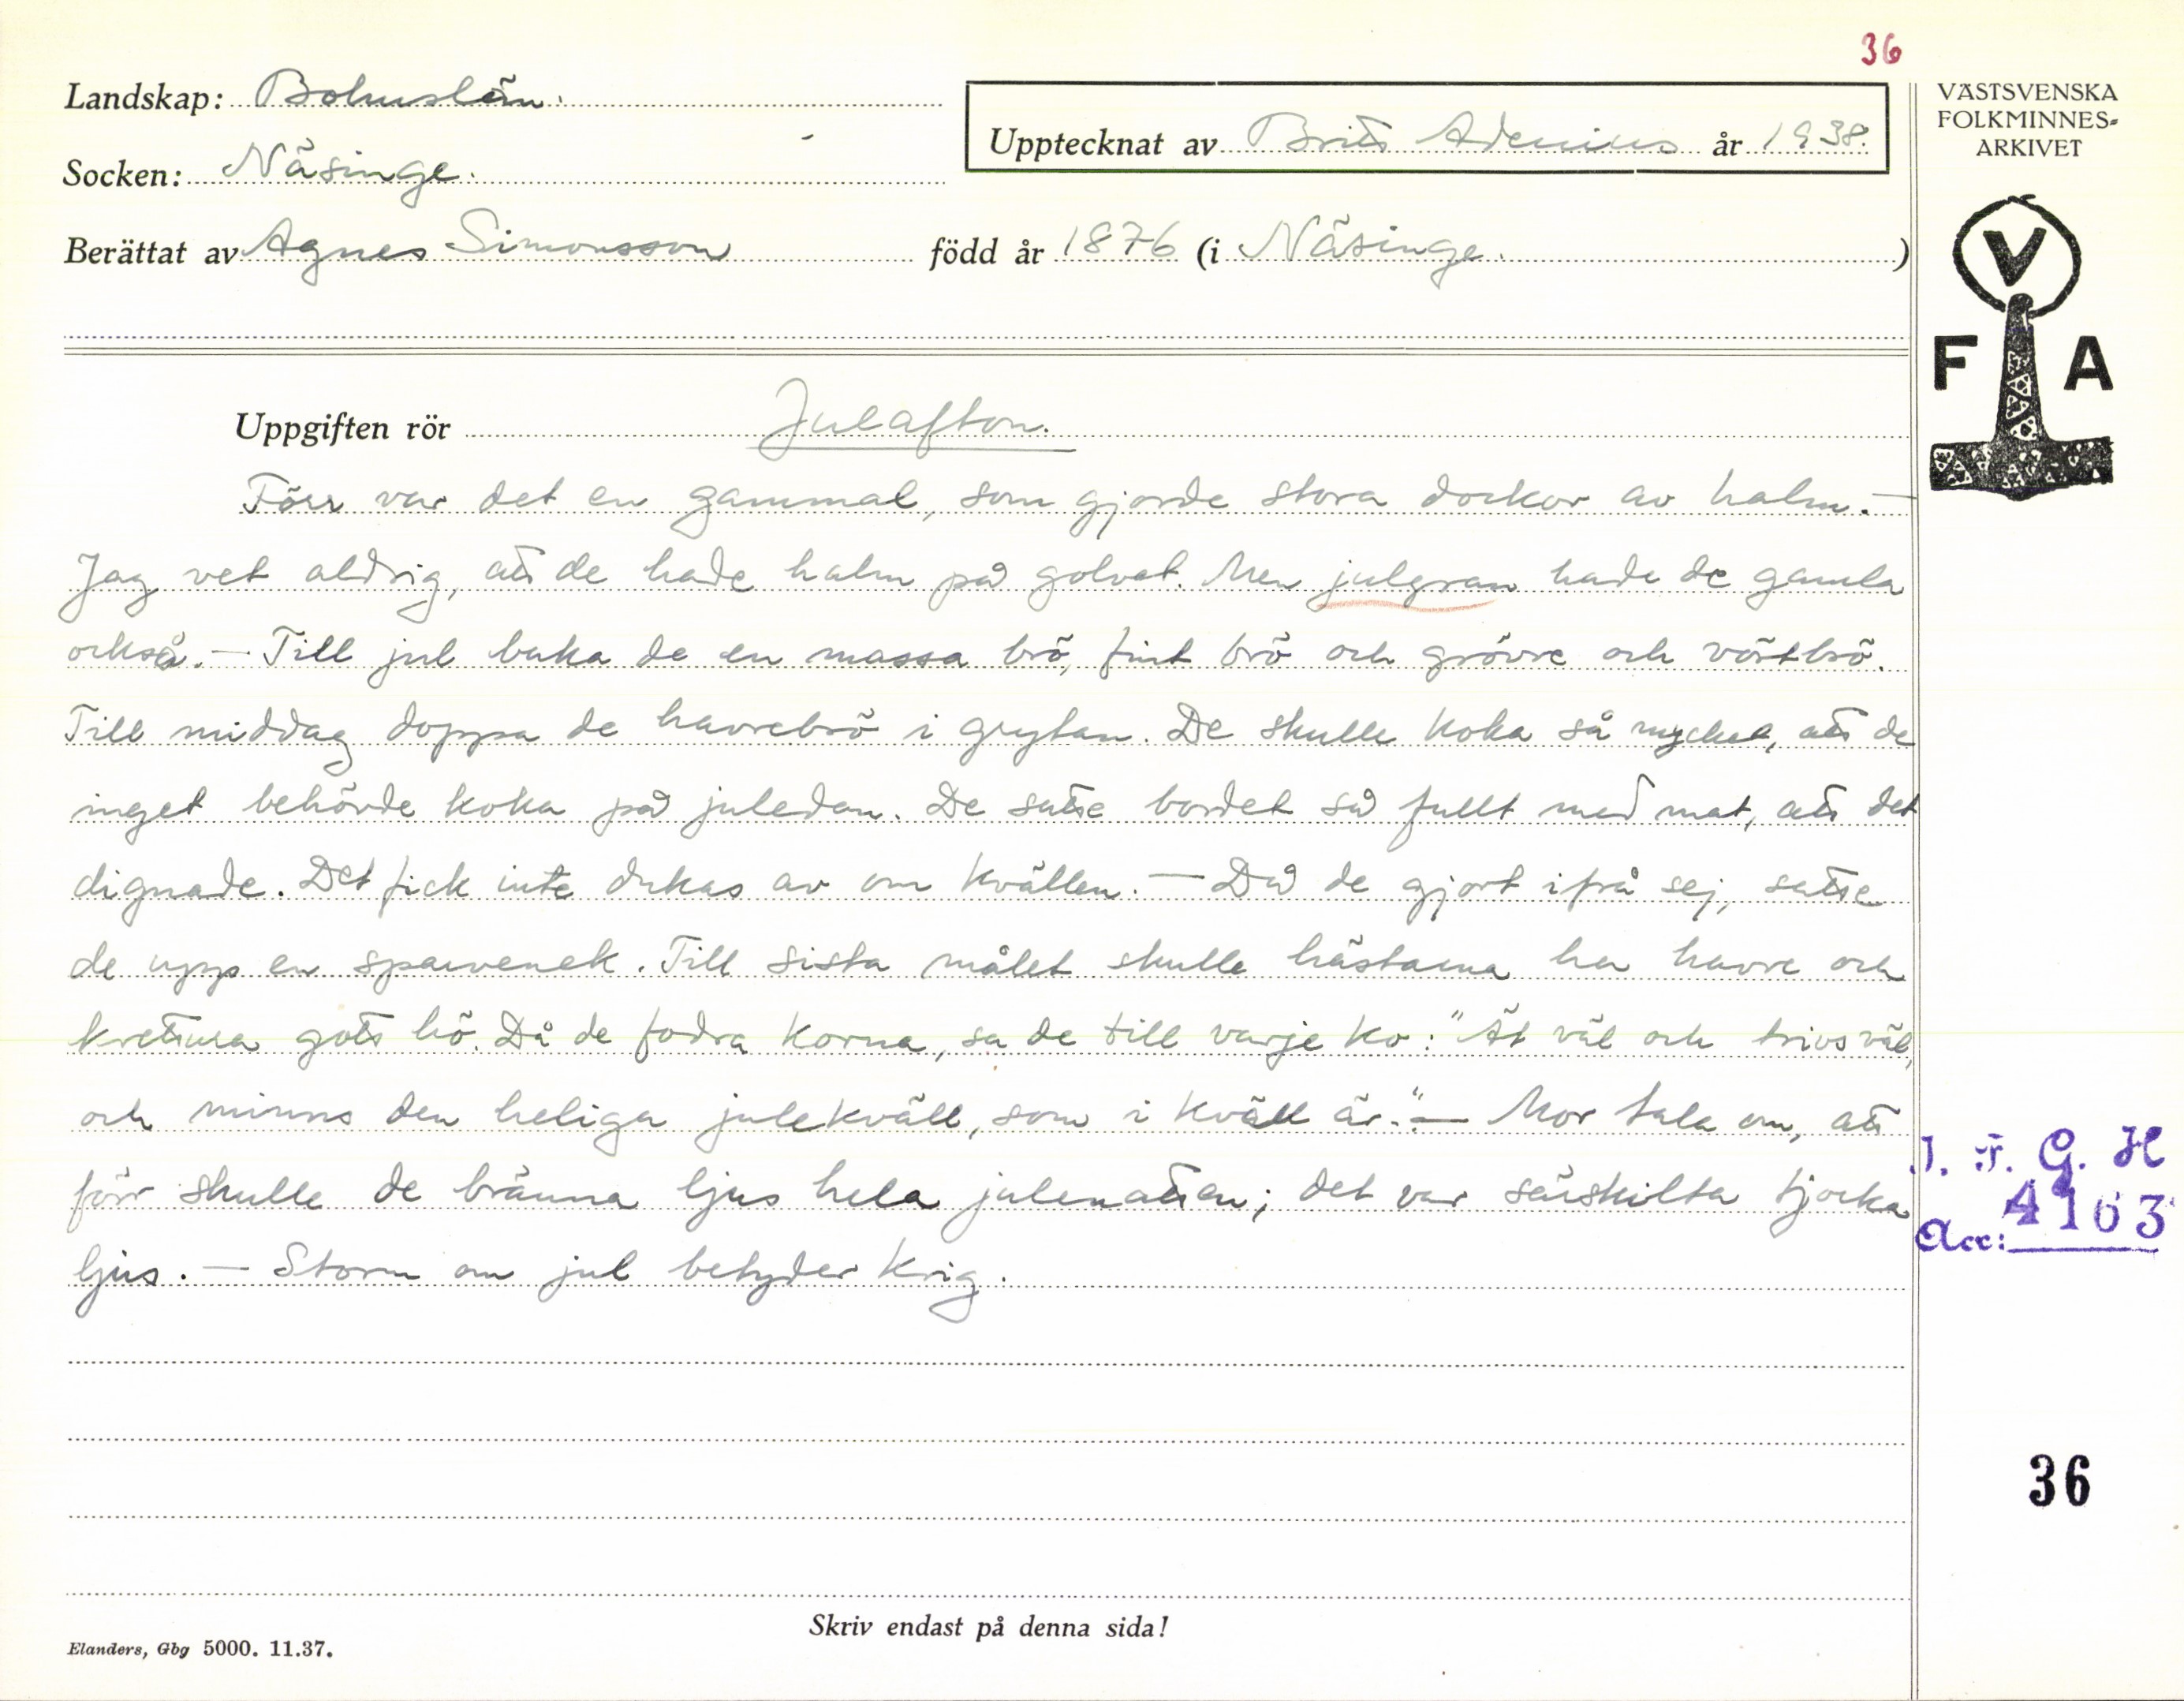 36
Landskap: Bohuslän.
VÄSTSVENSKA
FOLKMINNES-
ARKIVET
Upptecknat av Britt Adenius år 1938.
Socken: Näsinge.
Berättat av Agnes Simonsson född år 1876 (i Näsinge.)
V
F A
Uppgiften rör Julafton.
Förr var det en gammal, som gjorde stora dockor av halm. —
Jag vet aldrig, att de hade halm på golvet. Men julgran hade de gamla
också. — Till jul baka de en massa brö, fint brö och grövre och vörtbrö.
Till middag doppa de havrebrö i grytan. De skulle koka så mycket, att de
inget behövde koka på juledan. De satte bordet så fullt med mat, att det
dignade. Det fick inte dukas av om kvällen. — Då de gjort ifrå sej, satte
de upp en sparvenek. Till sista målet skulle hästarna ha havre och
kretura gott hö. Då de fodra korna, sa de till varje ko: "Ät väl och trivs väl,
och minns den heliga julekväll, som i kväll är." — Mor tala om, att
förr skulle de bränna ljus hela julenatten; det var särskilta tjocka
ljus. — Storm om jul betyder krig.
I. F. G. H
Acc: 4163
36
Skriv endast på denna sida!
Elanders, Gbg 5000. 11.37.